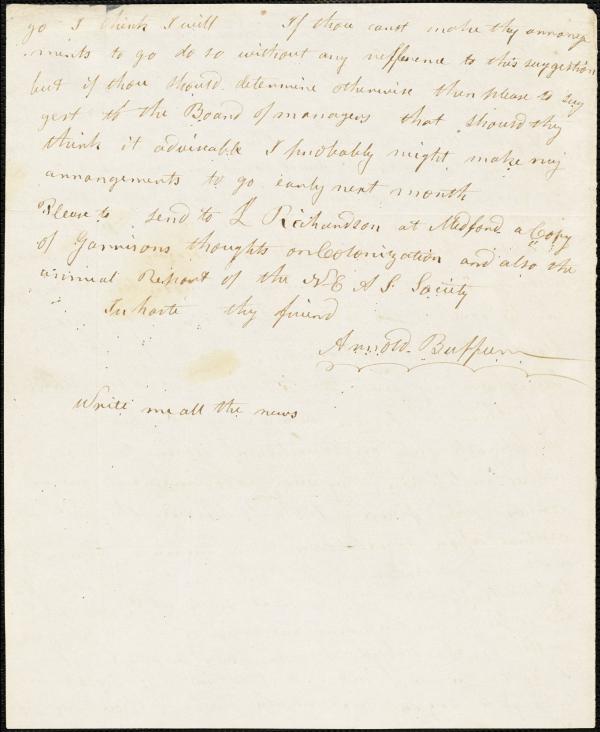 go I think I will If thou canst make thy arrange
ments to go do so without any refference to this suggestion
but if thou should determine otherwise then please to sug
gest to the Board of managers that should they
think it adviseable I probably might make my
arrangements to go early next month
Please to send to L Richardson at Medford a Copy
of Garrisons thoughts on Colonization and also the
annual Report of the N E A S. Society
In haste thy friend
Arnold Buffum
Write me all the news